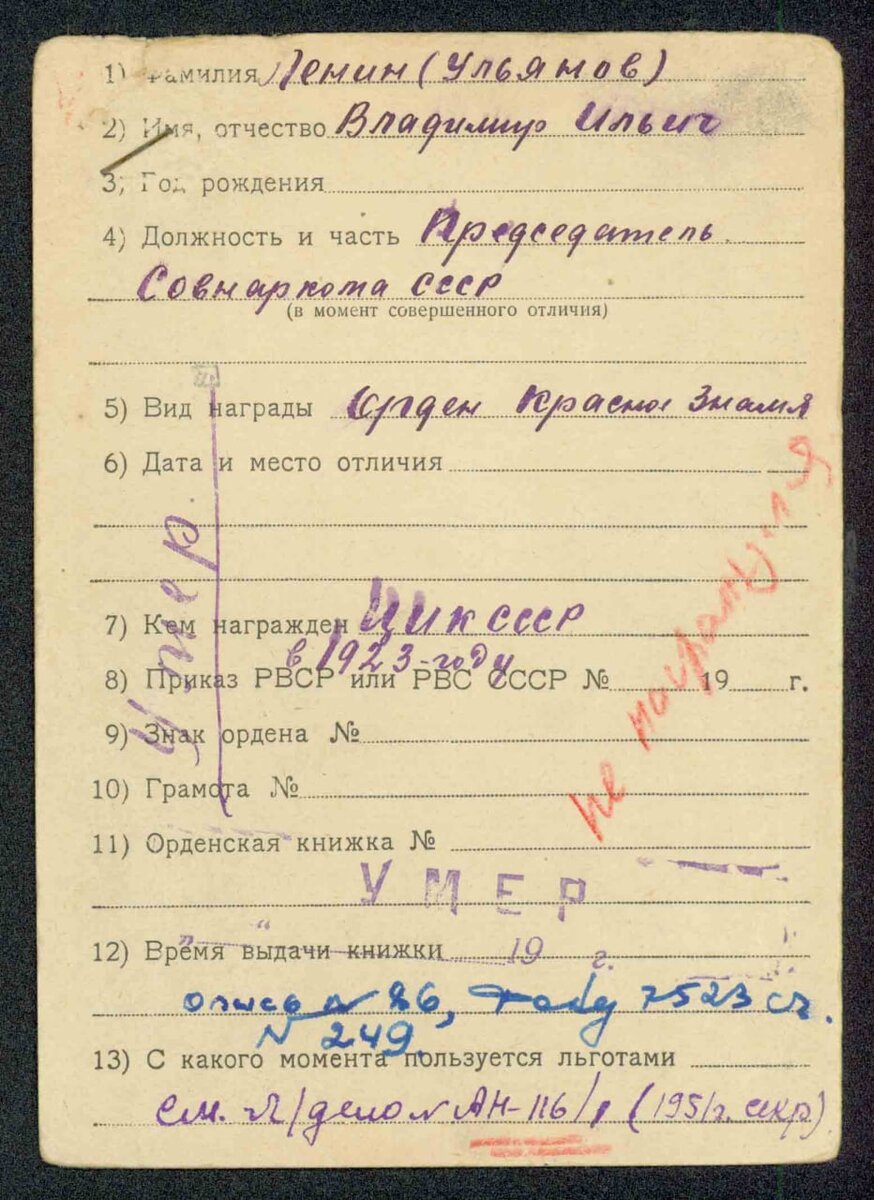 1) Фамилия Ленин (Ульянов)
2) Имя, отчество Владимир Ильич
3) Год рождения
4) Должность и часть Председатель
Совнаркома СССР
(в момент совершенного отличия)
5) Вид награды Орден Красное Знамя
6) Дата и место отличия
Умер.
не награждался
7) Кем награжден ЦИК СССР
в 1923-году
8) Приказ РВСР или РВС СССР № 19 г.
9) Знак ордена №
10) Грамота №
11) Орденская книжка №
УМЕР
12) Время выдачи книжки 19 г.
опись № 26, 7523
№ 249.
13) С какого момента пользуется льготами
См. Л/дело № АН-116/1 (1951г. секр)